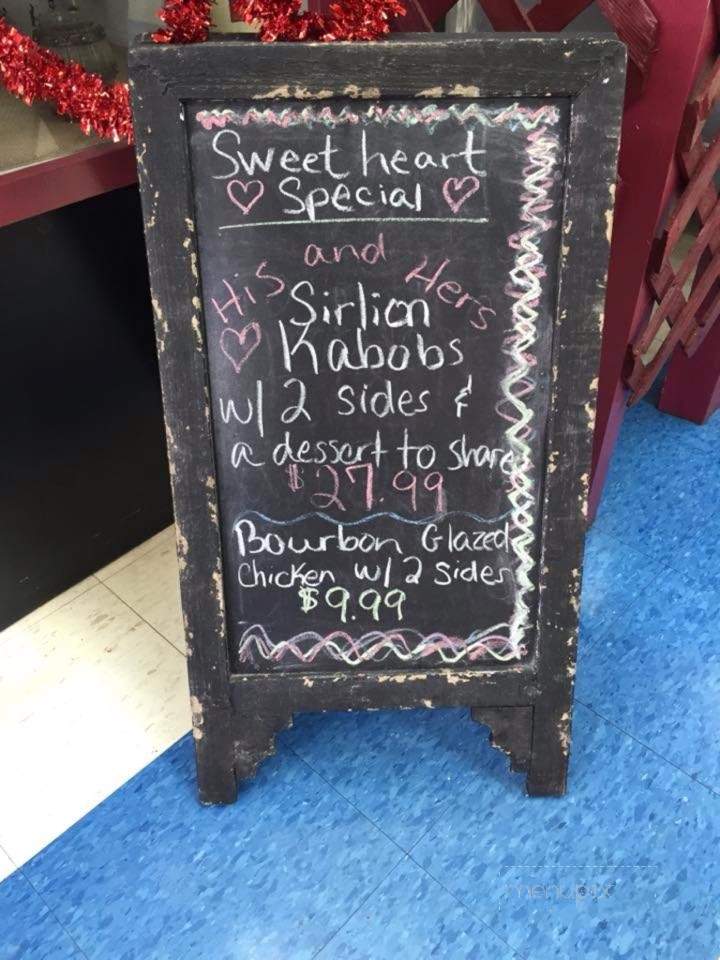 Sweet heart
Special
His and Hers
Sirlion
Kabobs
w/ 2 sides &
a dessert to share
$27.99
Bourbon Glazed
Chicken w/ 2 sides
$9.99
menupix